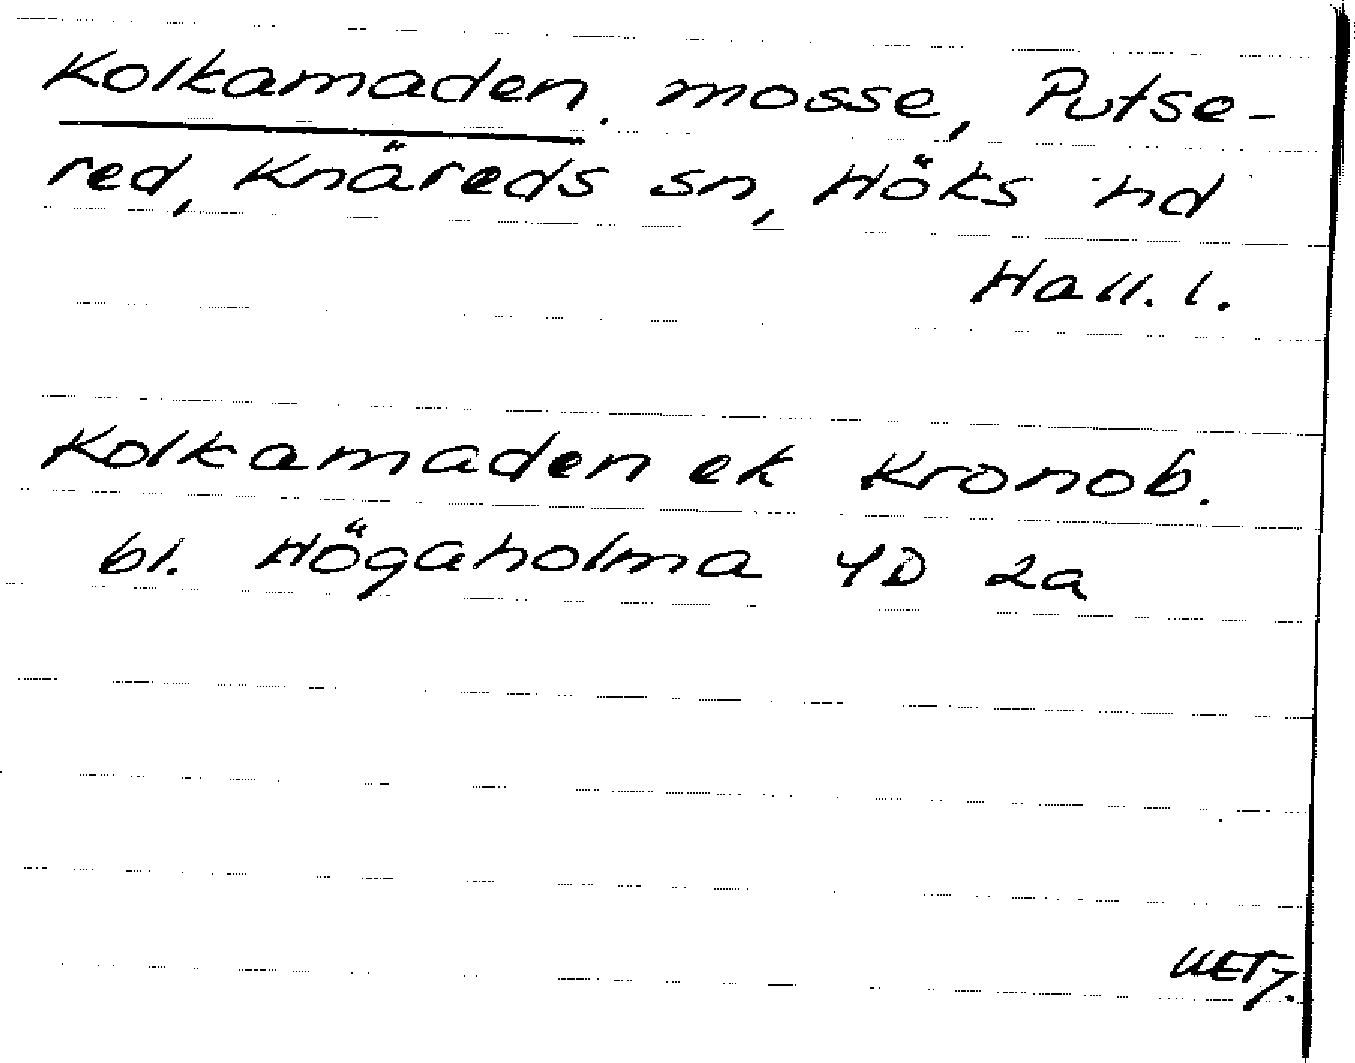 Kolkamaden. mosse, Putse-
red, Knäreds sn, Höks hd
Hall. l.
Kolkamaden ek Kronob.
bl. Högaholma 4D 2a